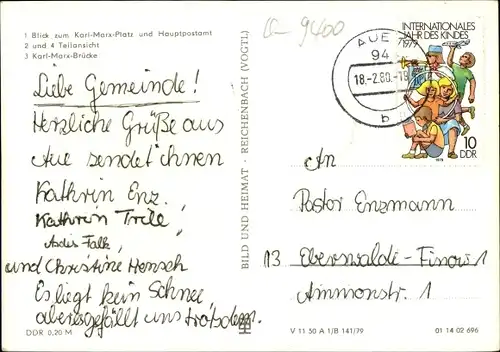 1 Blick zum Karl-Marx-Platz und Hauptpostamt
2 und 4 Teilansicht
3 Karl-Marx-Brücke
Liebe Gemeinde!
Herzliche Grüße aus
Aue sendet ihnen
Kathrin Enz,
Kathrin Trele,
Falk,
und Christine Hensch
Es liegt kein Schnee
aber es gefällt uns trotzdem.
DDR 0,20 M
BILD UND HEIMAT · REICHENBACH (VOGTL)
9400
AUE
94
18.-2.80.-18
b
INTERNATIONALES
JAHR DES KINDES
1979
10
DDR
1979
An
Pastor Enzmann
13 Eberswalde-Finow 1
Ammonstr. 1
V 11 50 A 1/B 141/79
01 14 02 696